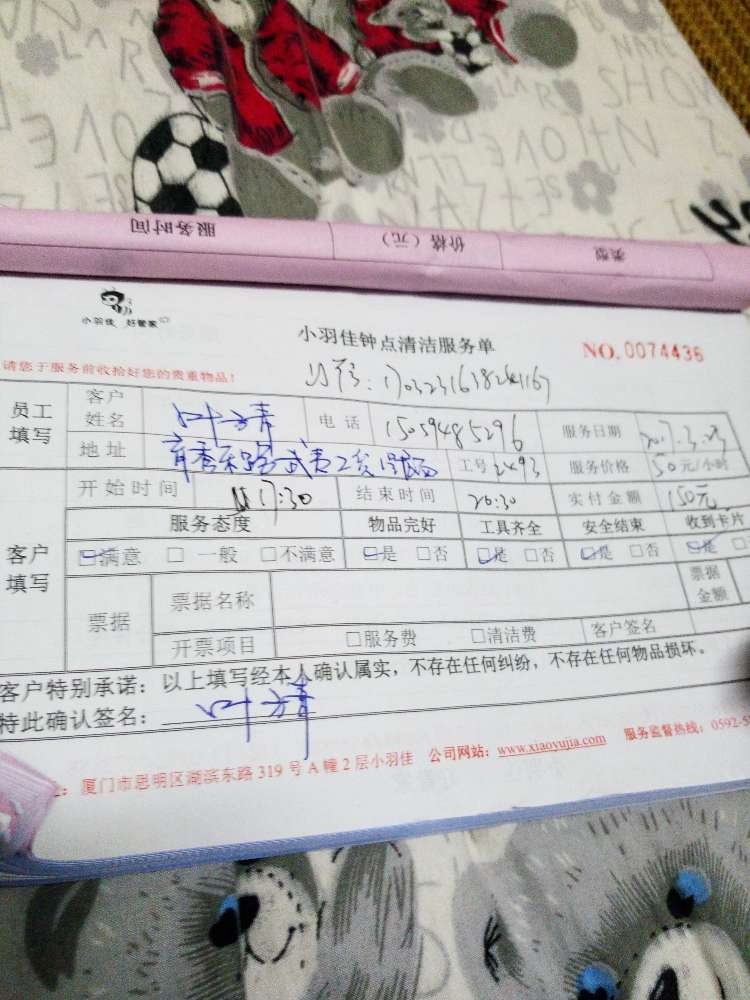 服务时间 价格（元） 类型
小羽佳 好管家
小羽佳钟点清洁服务单
NO. 0074436
请您于服务前收拾好您的贵重物品！
员工填写 客户姓名 叶方青 电话 15059485296 服务日期 2017.3.23
地址 工号 2493 服务价格 50元/小时
客户填写 开始时间 17:30 结束时间 20:30 实付金额 150元
服务态度 物品完好 工具齐全 安全结束 收到卡片
☑满意 □一般 □不满意 ☑是 □否 ☑是 □否 ☑是 □否 ☑是
票据 票据名称 票据金额
开票项目 □服务费 □清洁费 客户签名
客户特别承诺：以上填写经本人确认属实，不存在任何纠纷，不存在任何物品损坏。
特此确认签名： 叶方青
厦门市思明区湖滨东路319号A幢2层小羽佳 公司网站：www.xiaoyujia.com 服务监督热线：0592-5